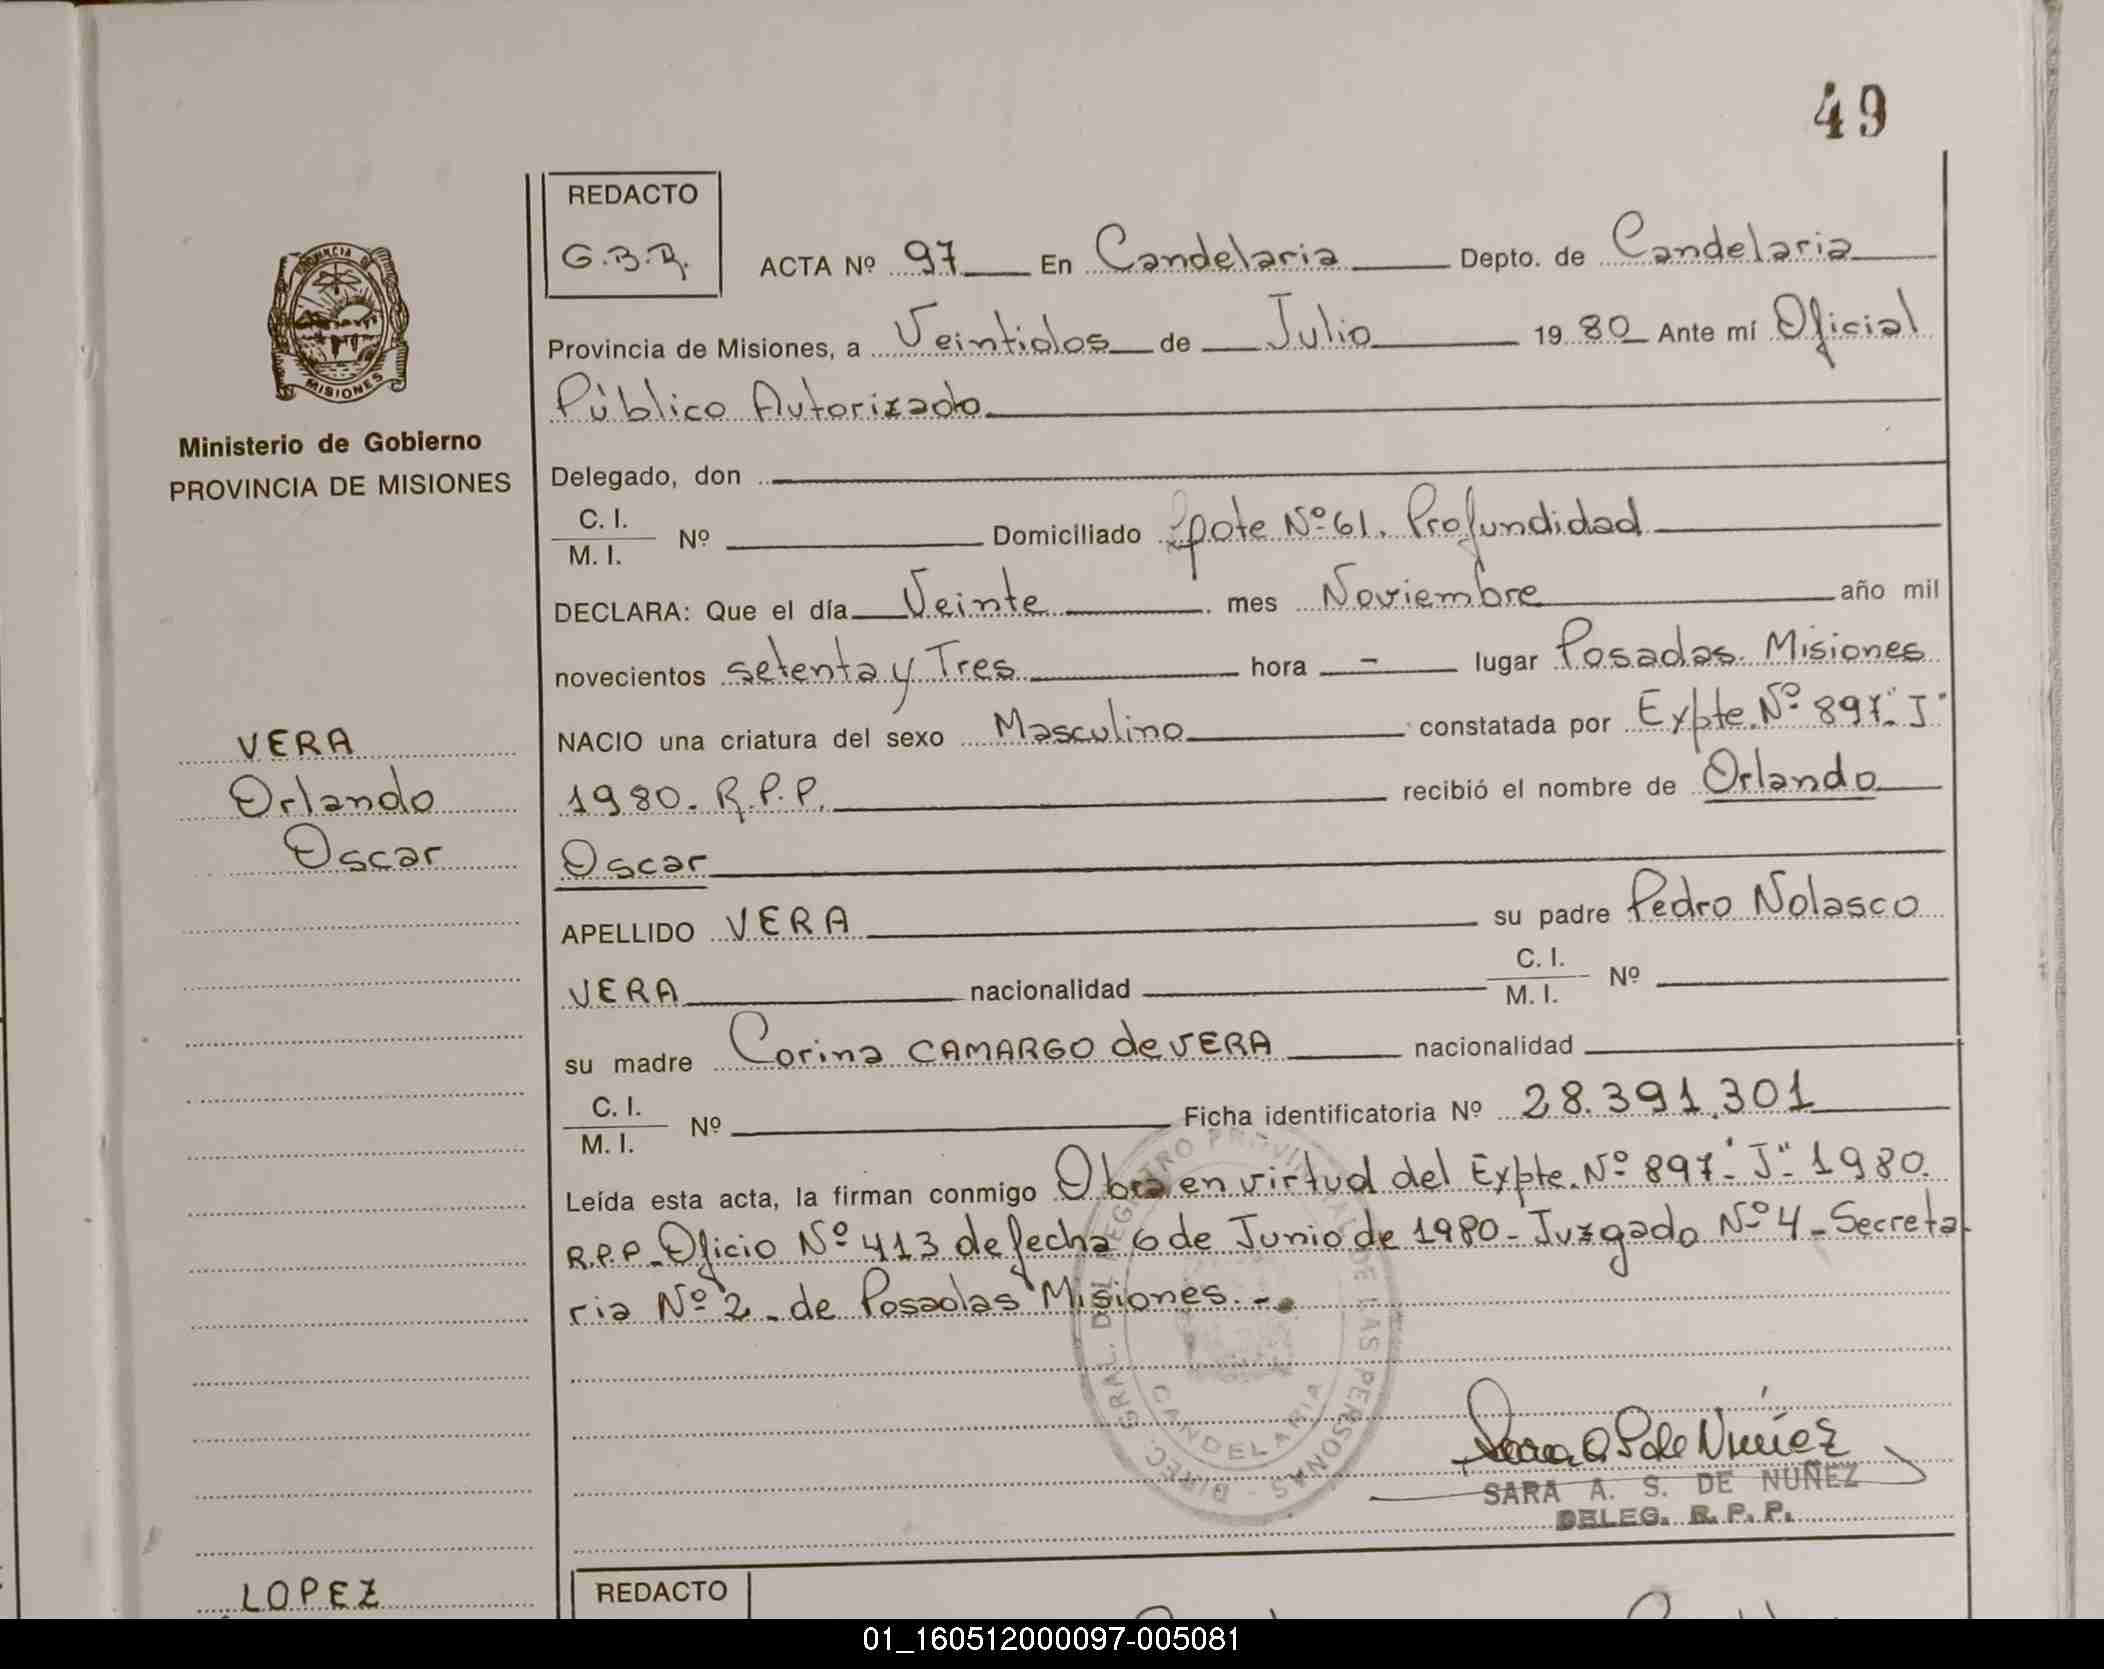 49
REDACTO
G.B.R.
ACTA Nº 97 En Candelaria Depto. de Candelaria
Provincia de Misiones, a Veintidos de Julio 1980 Ante mí Oficial
Público Autorizado
Delegado, don
C. I.
M. I.
Nº Domiciliado Lote Nº 61. Profundidad
DECLARA: Que el día Veinte mes Noviembre año mil
novecientos setenta y Tres hora - lugar Posadas. Misiones
NACIO una criatura del sexo Masculino constatada por Expte. Nº 897"J"
1980. R.P.P. recibió el nombre de Orlando
Oscar
APELLIDO VERA su padre Pedro Nolasco
VERA nacionalidad C. I.
M. I. Nº
su madre Corina CAMARGO de VERA nacionalidad
C. I.
M. I.
Nº Ficha identificatoria Nº 28.391.301
Leída esta acta, la firman conmigo Obra en virtud del Expte. Nº 897"J" 1980.
R.P.P. Oficio Nº 413 de fecha 6 de Junio de 1980 - Juzgado Nº 4 - Secreta
ria Nº 2 - de Posadas Misiones. -.
PROVINCIA DE
MISIONES
Ministerio de Gobierno
PROVINCIA DE MISIONES
VERA
Orlando
Oscar
DIREC. GRAL. DEL REGISTRO PROVINCIAL DE LAS PERSONAS -
CANDELARIA
SARA A. S. DE NUÑEZ
DELEG. R. P. P.
LOPEZ
REDACTO
01_160512000097-005081